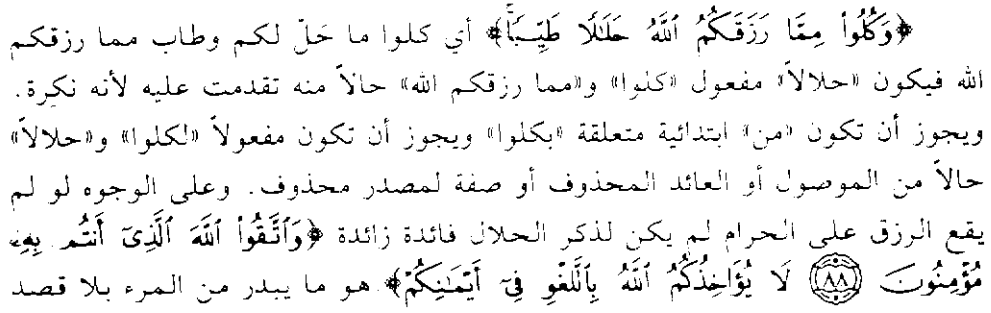 ﴿وَكُلُوا۟ مِمَّا رَزَقَكُمُ ٱللَّهُ حَلَٰلًا طَيِّبًاۚ﴾ أي كلوا ما حَلّ لكم وطاب مما رزقكم
الله فيكون «حلالاً» مفعول «كلوا» و«مما رزقكم الله» حالاً منه تقدمت عليه لأنه نكرة.
ويجوز أن تكون «من» ابتدائية متعلقة «بكلوا» ويجوز أن تكون مفعولاً «لكلوا» و«حلالاً»
حالاً من الموصول أو العائد المحذوف أو صفة لمصدر محذوف. وعلى الوجوه لو لم
يقع الرزق على الحرام لم يكن لذكر الحلال فائدة زائدة ﴿وَٱتَّقُوا۟ ٱللَّهَ ٱلَّذِىٓ أَنتُم بِهِۦ
مُؤْمِنُونَ ٨٨ لَا يُؤَاخِذُكُمُ ٱللَّهُ بِٱللَّغْوِ فِىٓ أَيْمَٰنِكُمْ﴾ هو ما يبدر من المرء بلا قصد